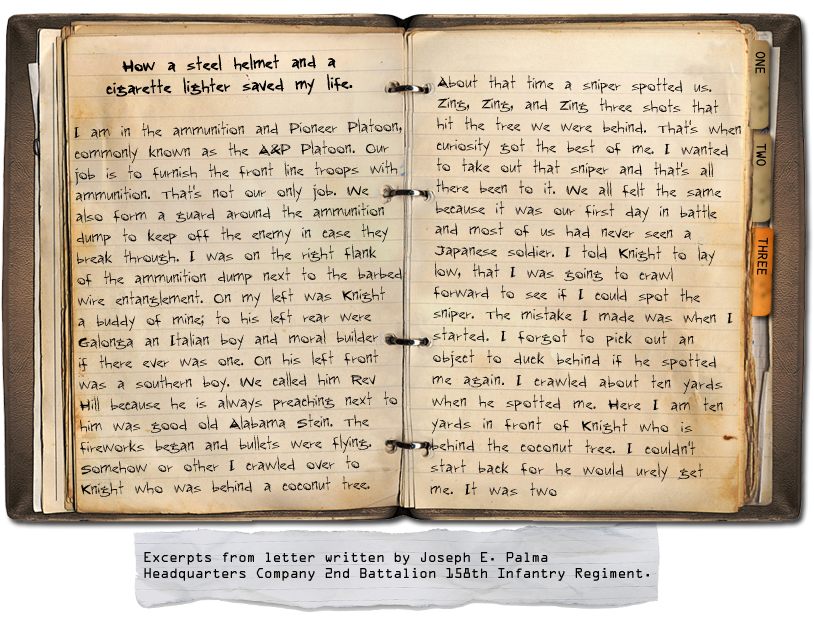 How a steel helmet and a
cigarette lighter saved my life.
I am in the ammunition and Pioneer Platoon,
commonly known as the A&P Platoon. Our
job is to furnish the front line troops with
ammunition. That's not our only job. We
also form a guard around the ammunition
dump to keep off the enemy in case they
break through. I was on the right flank
of the ammunition dump next to the barbed
wire entanglement. On my left was Knight
a buddy of mine; to his left rear were
Galonga an Italian boy and moral builder
if there ever was one. On his left front
was a southern boy. We called him Rev
Hill because he is always preaching next to
him was good old Alabama Stein. The
fireworks began and bullets were flying.
Somehow or other I crawled over to
Knight who was behind a coconut tree.
About that time a sniper spotted us.
Zing, Zing, and Zing three shots that
hit the tree we were behind. That's when
curiosity got the best of me. I wanted
to take out that sniper and that's all
there been to it. We all felt the same
because it was our first day in battle
and most of us had never seen a
Japanese soldier. I told Knight to lay
low, that I was going to crawl
forward to see if I could spot the
sniper. The mistake I made was when I
started. I forgot to pick out an
object to duck behind if he spotted
me again. I crawled about ten yards
when he spotted me. Here I am ten
yards in front of Knight who is
behind the coconut tree. I couldn't
start back for he would urely get
me. It was two
ONE
TWO
THREE
Excerpts from letter written by Joseph E. Palma
Headquarters Company 2nd Battalion 158th Infantry Regiment.